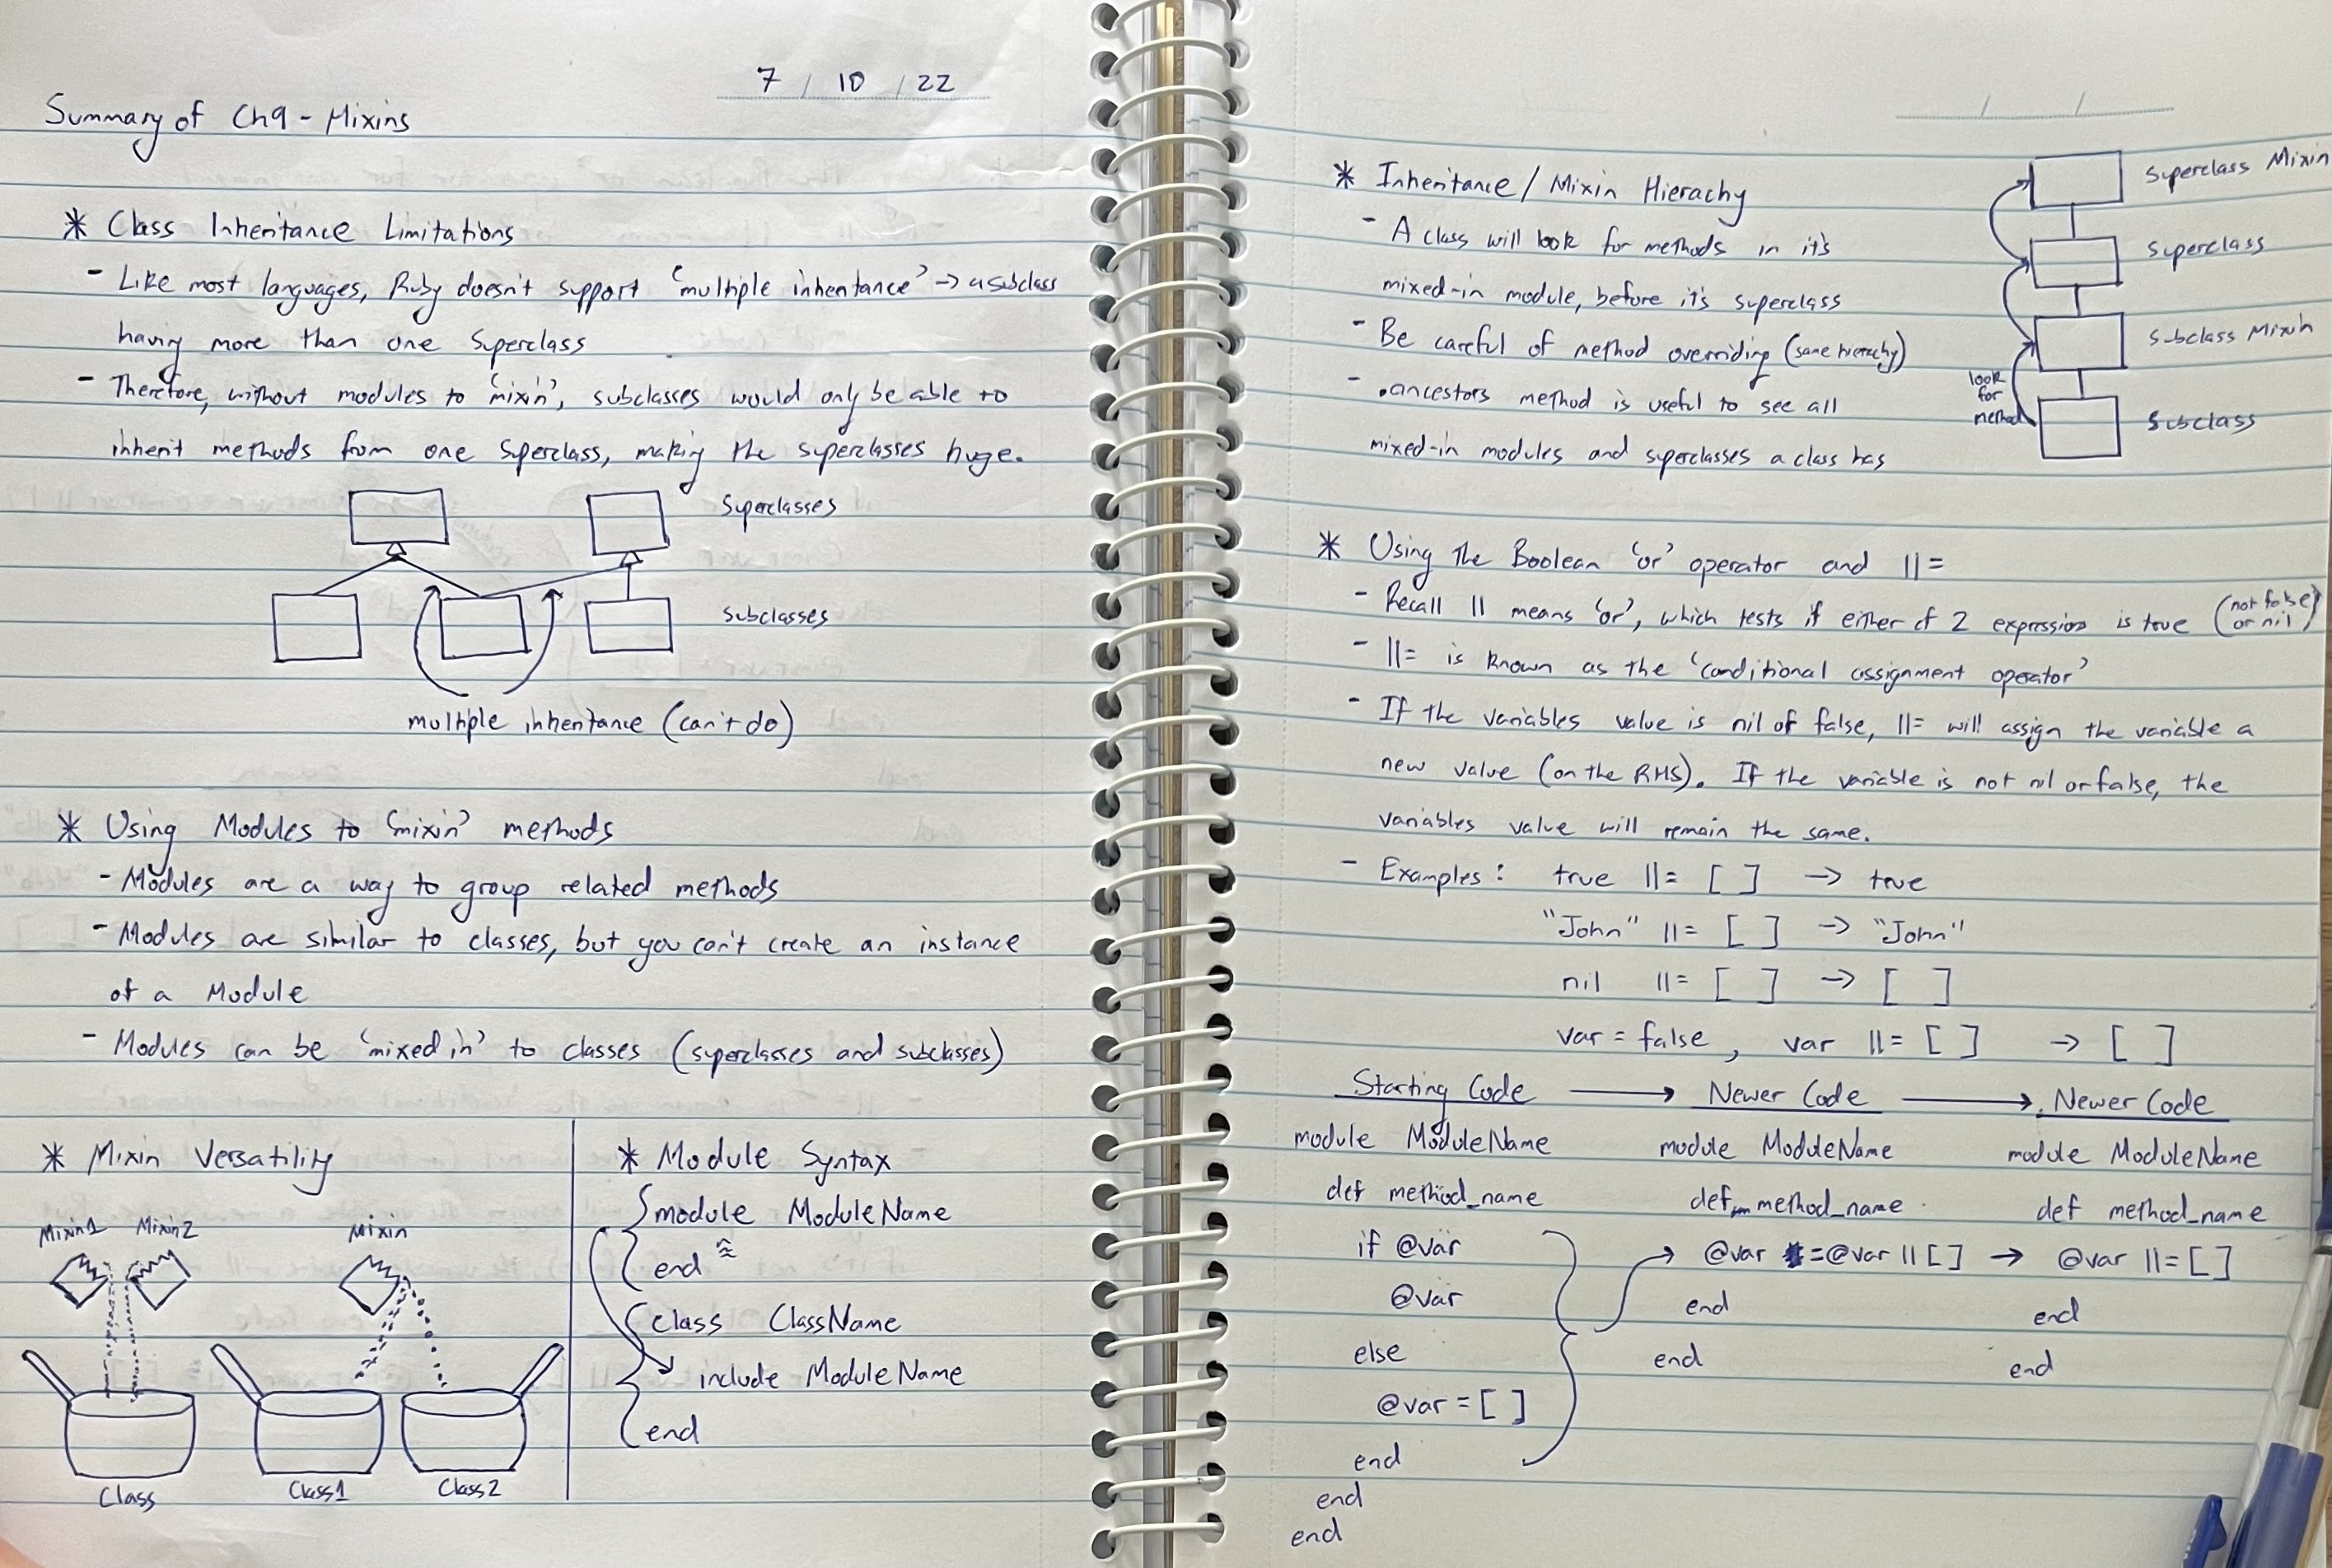 7 / 10 / 22
Summary of Ch9 - Mixins
* Class Inheritance Limitations
- Like most languages, Ruby doesn't support 'multiple inheritance' -> a subclass
having more than one Superclass
- Therefore, without modules to 'mixin', subclasses would only be able to
inherit methods from one Superclass, making the superclasses huge.
Superclasses
Subclasses
multiple inheritance (can't do)
* Using Modules to 'mixin' methods
- Modules are a way to group related methods
- Modules are similar to classes, but you can't create an instance
of a Module
- Modules can be 'mixed in' to classes (superclasses and subclasses)
* Mixin Versatility
Mixin1 Mixin2 Mixin
Class Class1 Class2
* Module Syntax
module ModuleName
end
class ClassName
include ModuleName
end
* Inheritance / Mixin Hierachy
- A class will look for methods in it's
mixed-in module, before it's superclass
- Be careful of method overriding (same hierachy)
- .ancestors method is useful to see all
mixed-in modules and superclasses a class has
Superclass Mixin
Superclass
Subclass Mixin
Subclass
look
for
method
* Using the Boolean 'or' operator and ||=
- Recall || means 'or', which tests if either of 2 expression is true (not false or nil)
- ||= is known as the 'conditional assignment operator'
- If the variables value is nil of false, ||= will assign the variable a
new value (on the RHS). If the variable is not nil or false, the
variables value will remain the same.
- Examples: true ||= [ ] -> true
"John" ||= [ ] -> "John"
nil ||= [ ] -> [ ]
var = false, var ||= [ ] -> [ ]
Starting Code -> Newer Code -> Newer Code
module ModuleName
def method_name
if @var
@var
else
@var = [ ]
end
end
end
module ModuleName
def method_name
@var = @var || [ ] ->
end
end
module ModuleName
def method_name
@var ||= [ ]
end
end